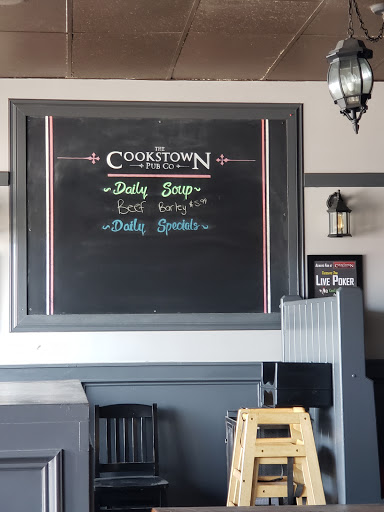 THE
COOKSTOWN
PUB CO
~Daily Soup~
Beef Barley $5.99
~Daily Specials~
LIVE POKER